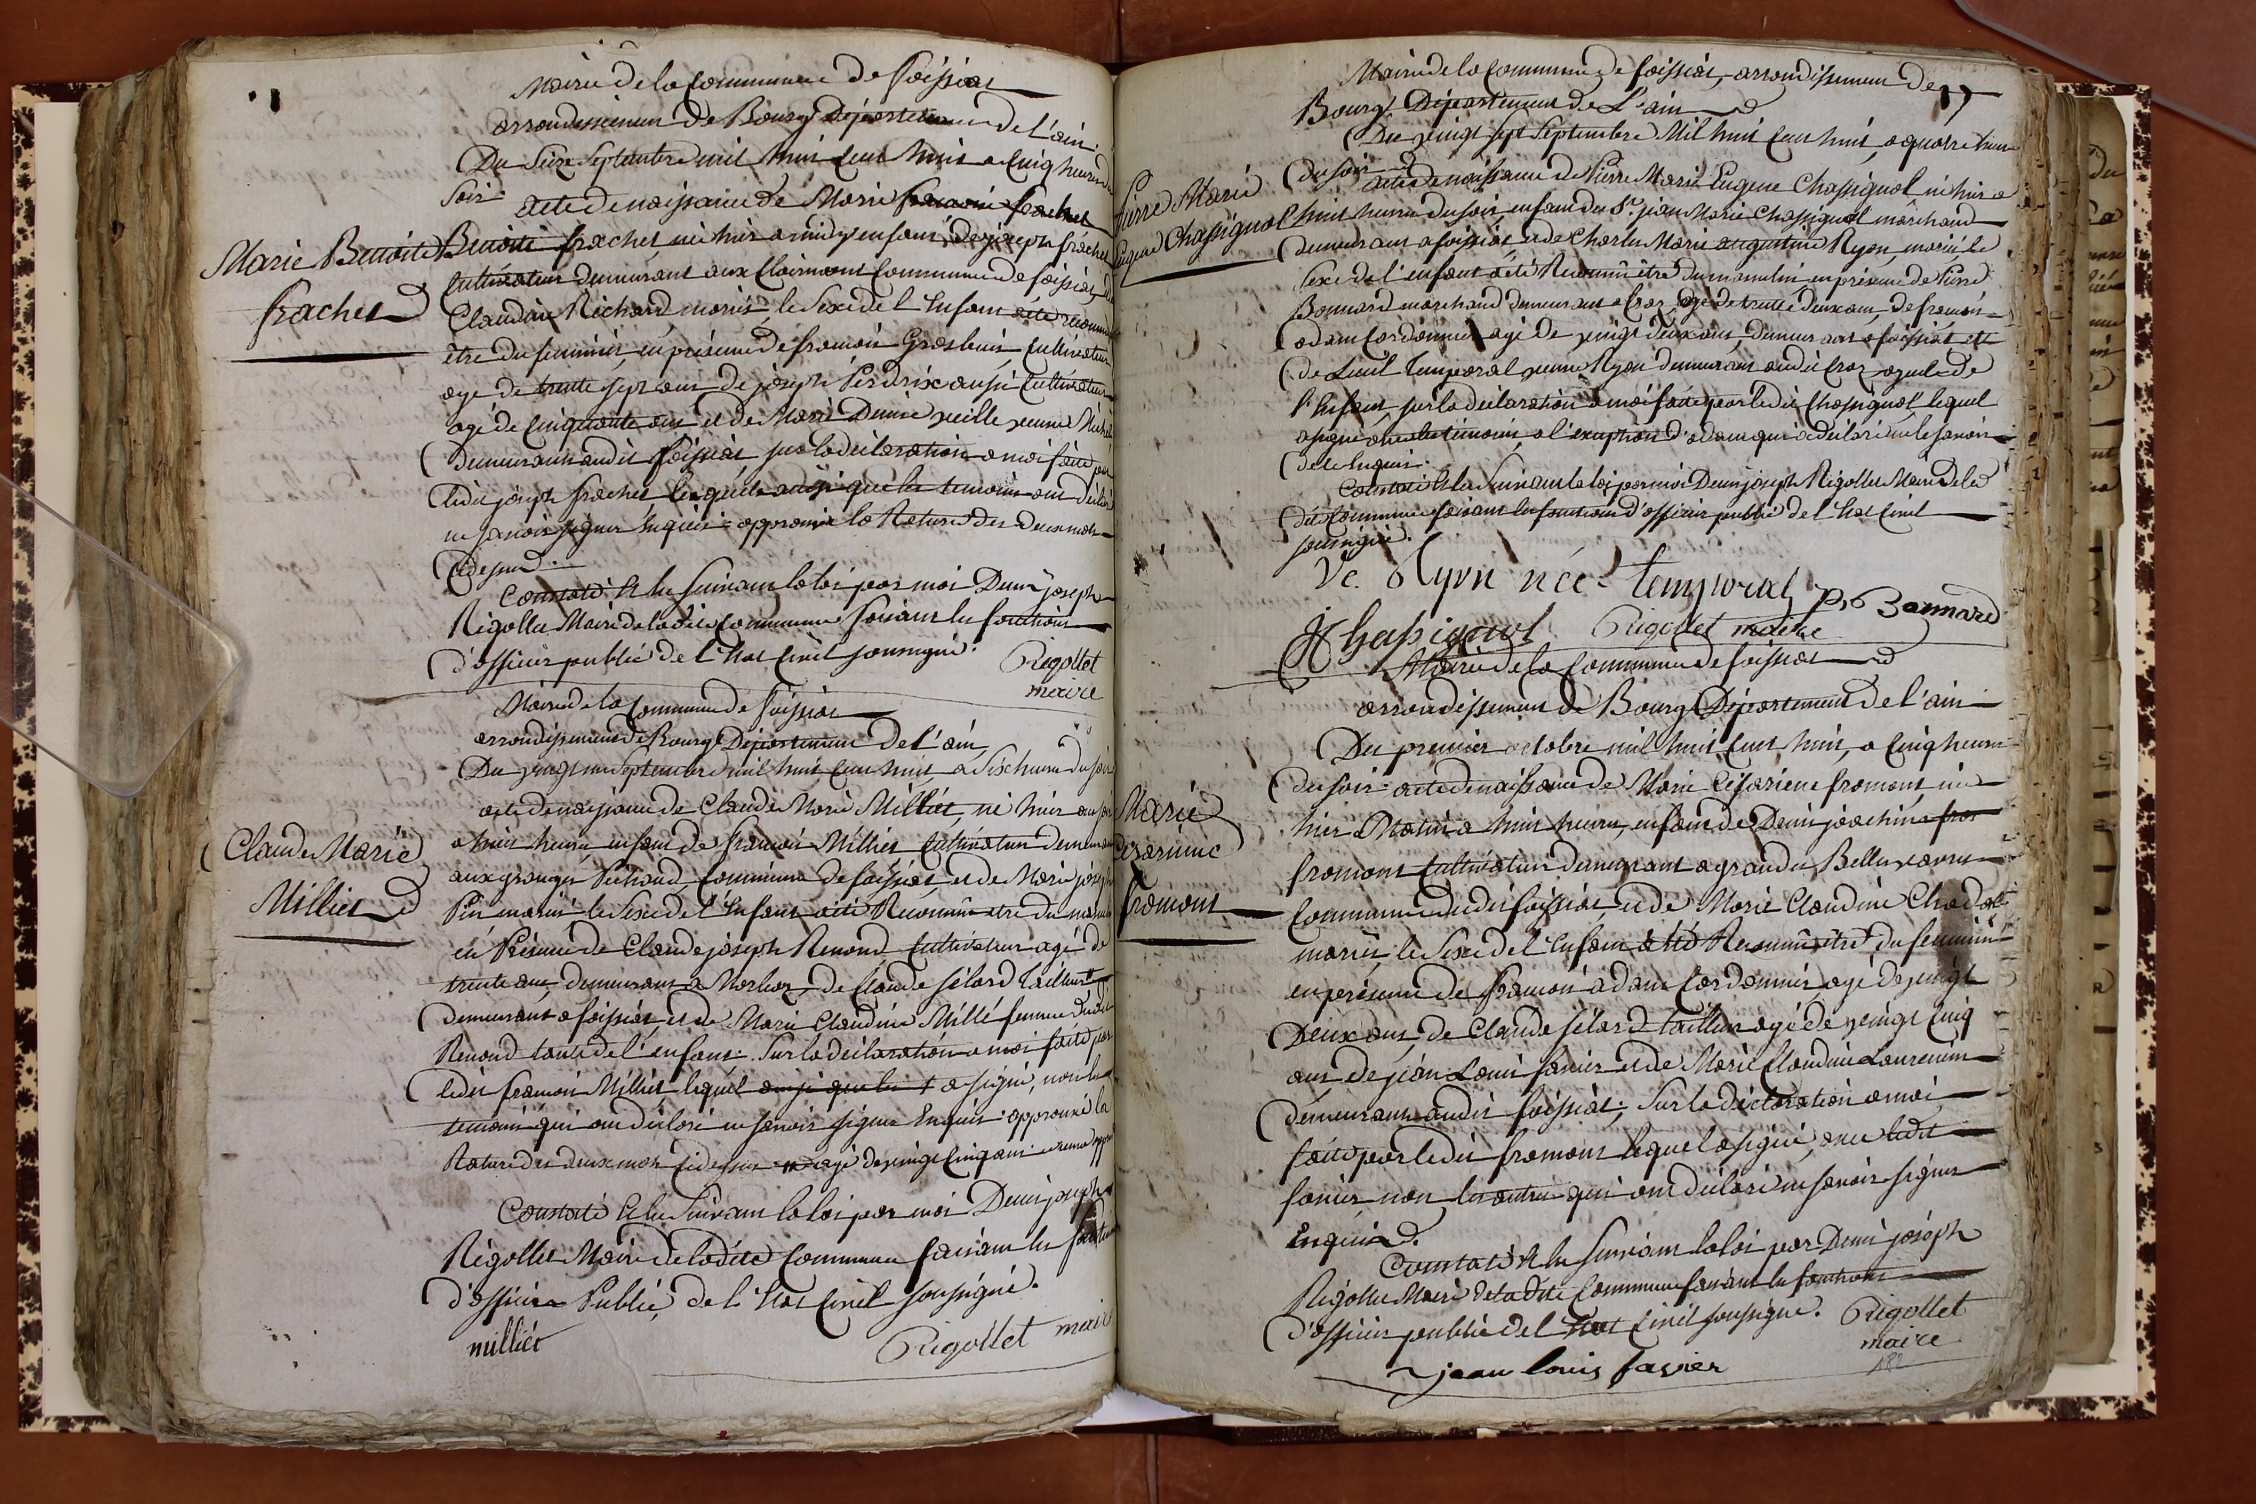 Mairie de la Commune de foissiat
arrondissement de Bourg Département de l'ain.
Du Seize Septembre mil huit Cent huit a Cinq heures du
Soir acte de naissance de Marie francoise frachet
Marie Benoite
frachet
Benoite frachet née hier a midy enfant de joseph frachet
Cultivateur demeurant aux Clairmont Commune de foissiat, et de
Claudine Richard mariés, le Sexe de l'Enfant a été reconnu
être du feminin, en présence de francois Grosbuis, Cultivateur
agé de trente sept ans de joseph Perdrix aussi Cultivateur
agé de Cinquante ans et de Marie Denise veuve
demeurants audit foissiat sur la déclaration a moi faite par
ledit joseph frachet lesquels ainsi que les temoins ont déclaré
ne savoir signer Enquis: approuvé la Rature des deux mots
Cidessus.
Constaté Et lu suivant la loi par moi Denis joseph
Rigollet Maire de ladite Commune faisant les fonctions
d'officier public de l'Etat Civil soussigné.
Rigollet
maire
Mairie de la Commune de foissiat
arrondissement de Bourg Département de l'ain
Du vingt un Septembre mil huit Cent huit, a Six heures du soir
acte de naissance de Claude Marie Milliet, né hier au soir
Claude Marie
Milliet
a huit heures enfant de francois Milliet Cultivateur demeurant
aux granges Pichaud Commune de foissiat, et de Marie joseph
Pin mariés le Sexe de l'Enfant a été Reconnu etre du masculin
en Présence de Claude joseph Renond Cultivateur agé de
trente ans, demeurant a Marboz, de Claude félard Tailleur
demeurant a foissiat, et de Marie Claudine Millé femme dudit
Renond tante de l'enfant. Sur la déclaration a moi faite par
ledit francois Milliet lequel ainsi que les a signé, non les
temoins qui ont déclaré ne savoir signer Enquis: approuvé la
Rature des deux mots Cidessus agé de vingt Cinq ans
Constaté Et lu Suivant la loi par moi Denis joseph
Rigollet Maire de ladite Commune faisant les fonctions
d'officier Public de l'Etat Civil soussigné.
milliet
Rigollet maire
Mairie de la Commune de foissiat, arrondissement de
Bourg Département de L'ain
Du vingt sept Septembre Mil huit Cent huit, a quatre heures
du soir acte de naissance de Pierre Marie Eugene Chassignol né hier a
Pierre Marie
Eugene Chassignol
huit heures du soir enfant du Sr. jean Marie Chassignol marchand
demeurant a foissiat et de Charle Marie augustine Ryon, mariés, le
Sexe de l'enfant a été Reconnu être du masculin, en présence de Pierre
Bonnard marchand demeurant a Cras, agé de trente deux ans, de francois
adam Cordonnier agé de vingt deux ans, demeurant a foissiat et
de Temporal veuve Ryon demeurant audit Cras ayeule de
l'Enfant, sur la déclaration a moi faite par ledit Chassignol, lequel
a signé avec les témoins, a l'exception d'adam qui a déclaré ne le savoir
de ce Enquis.
Constaté Et lu Suivant la loi par moi Denis joseph Rigollet Maire de la
dite Commune faisant les fonctions d'officier public de l'Etat Civil
soussigné.
Ve. Ryon née temporal
Pre Bonnard
Chassignol Rigollet maire
Mairie de la Commune de foissiat
arrondissement de Bourg Département de l'ain
Du premier octobre mil huit Cent huit, a Cinq heures
du soir acte de naissance de Marie Césarienne fromont, née
Marie
Cezarinne
fromont
hier Matin a huit heures, enfant de Denis joachim
fromont Cultivateur demeurant a grandes Bellesvavres
Commune dudit foissiat, et de Marie Claudine Chadal
mariés, le Sexe de l'Enfant a été Reconnu être du feminin
en présence de francois adam Cordonnier agé de vingt
Deux ans de Claude félard tailleur agé de vingt Cinq
ans de jean Louis favier et de Marie Claudine Laurencin
demeurants audit foissiat; Sur la déclaration a moi
faite par ledit fromont lequel a signé, avec ledit
favier non les autres qui ont déclaré ne savoir signer
Enquis.
Constaté Et lu suivant la loi par Denis joseph
Rigollet Maire de la dite Commune faisant les fonctions
d'officier public de l'Etat Civil soussigné.
Rigollet
maire
jean louis favier
182